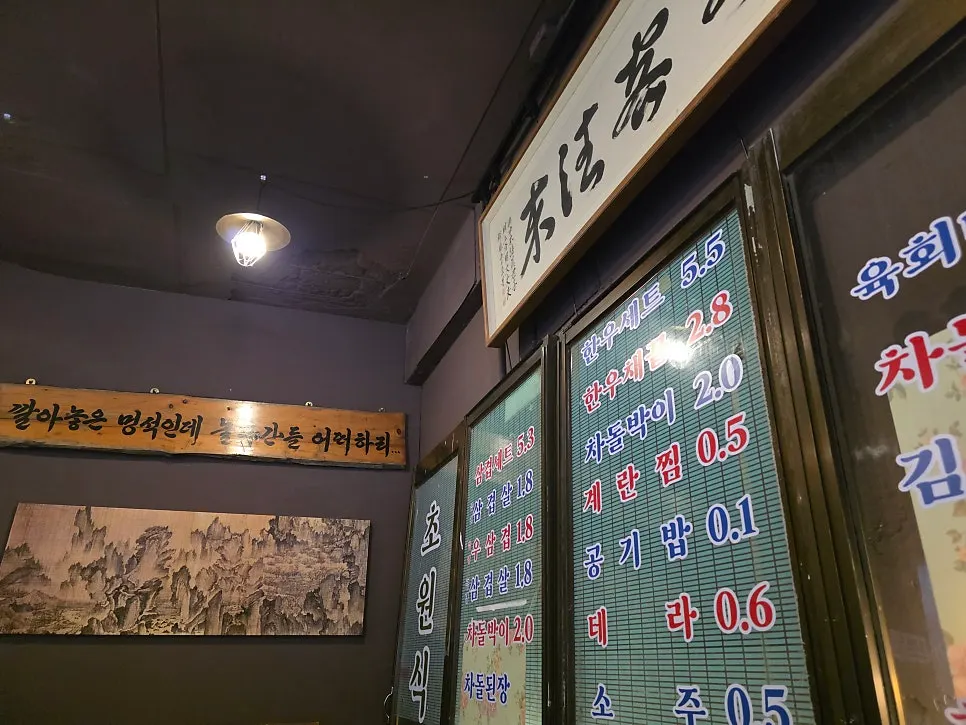 깔아놓은 멍석인데 놀고간들 어떠하리...
초원식
삼겹세트 5.3
삼겹살 1.8
우삼겹 1.8
삼겹살 1.8
차돌박이 2.0
차돌된장
한우세트 5.5
한우채끝 2.8
차돌박이 2.0
계란찜 0.5
공기밥 0.1
테라 0.6
소주 0.5
육회
차돌
김